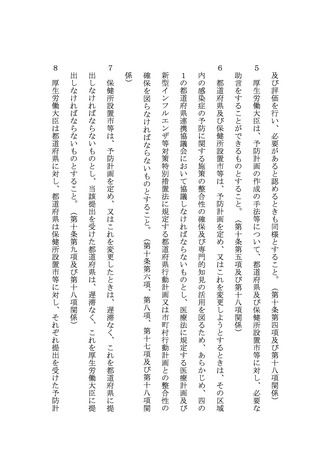 及び評価を行い、必要があると認めるときも同様とすること。（第十条第四項及び第十八項関係）
5 厚生労働大臣は、予防計画の作成の手法等について、都道府県及び保健所設置市等に対し、必要な
助言をすることができるものとすること。（第十条第五項及び第十八項関係）
6 都道府県及び保健所設置市等は、予防計画を定め、又はこれを変更しようとするときは、その区域
内の感染症の予防に関する施策の整合性の確保及び専門的知見の活用を図るため、あらかじめ、四の
1の都道府県連携協議会において協議しなければならないものとし、医療法に規定する医療計画及び
新型インフルエンザ等対策特別措置法に規定する都道府県行動計画又は市町村行動計画との整合性の
確保を図らなければならないものとすること。（第十条第六項、第八項、第十七項及び第十八項関
係）
7 保健所設置市等は、予防計画を定め、又はこれを変更したときは、遅滞なく、これを都道府県に提
出しなければならないものとし、当該提出を受けた都道府県は、遅滞なく、これを厚生労働大臣に提
出しなければならないものとすること。（第十条第九項及び第十八項関係）
8 厚生労働大臣は都道府県に対し、都道府県は保健所設置市等に対し、それぞれ提出を受けた予防計